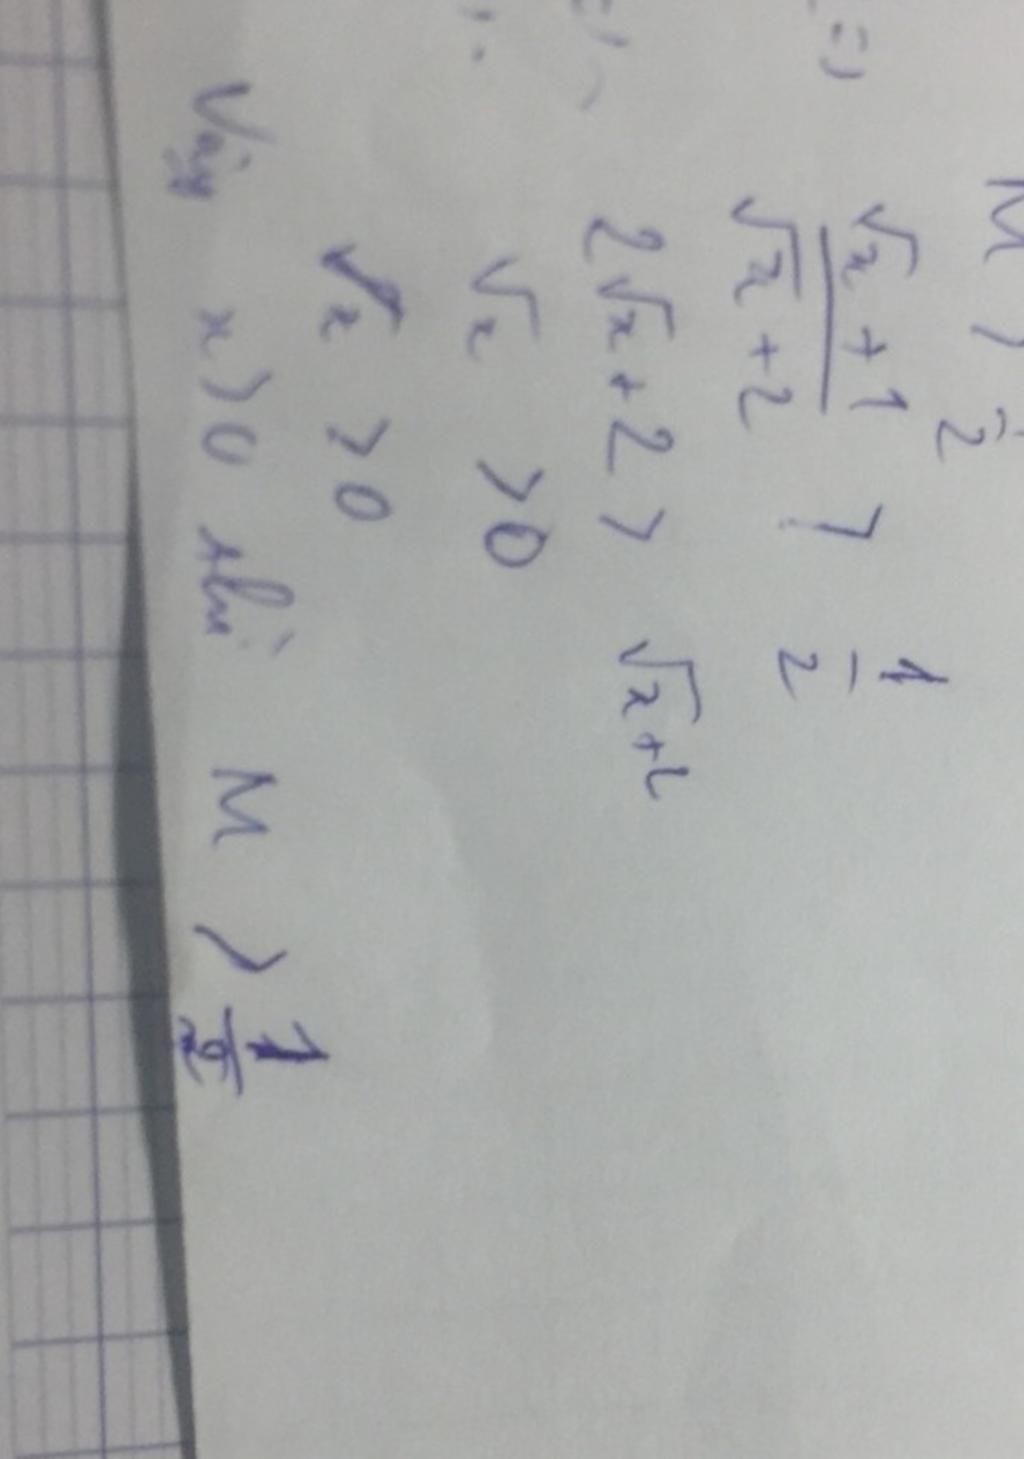 M > 1/2
=> (√x + 1)/(√x + 2) > 1/2
2√x + 2 > √x + 2
√x > 0
√x > 0
Vậy x > 0 thì M > 1/2